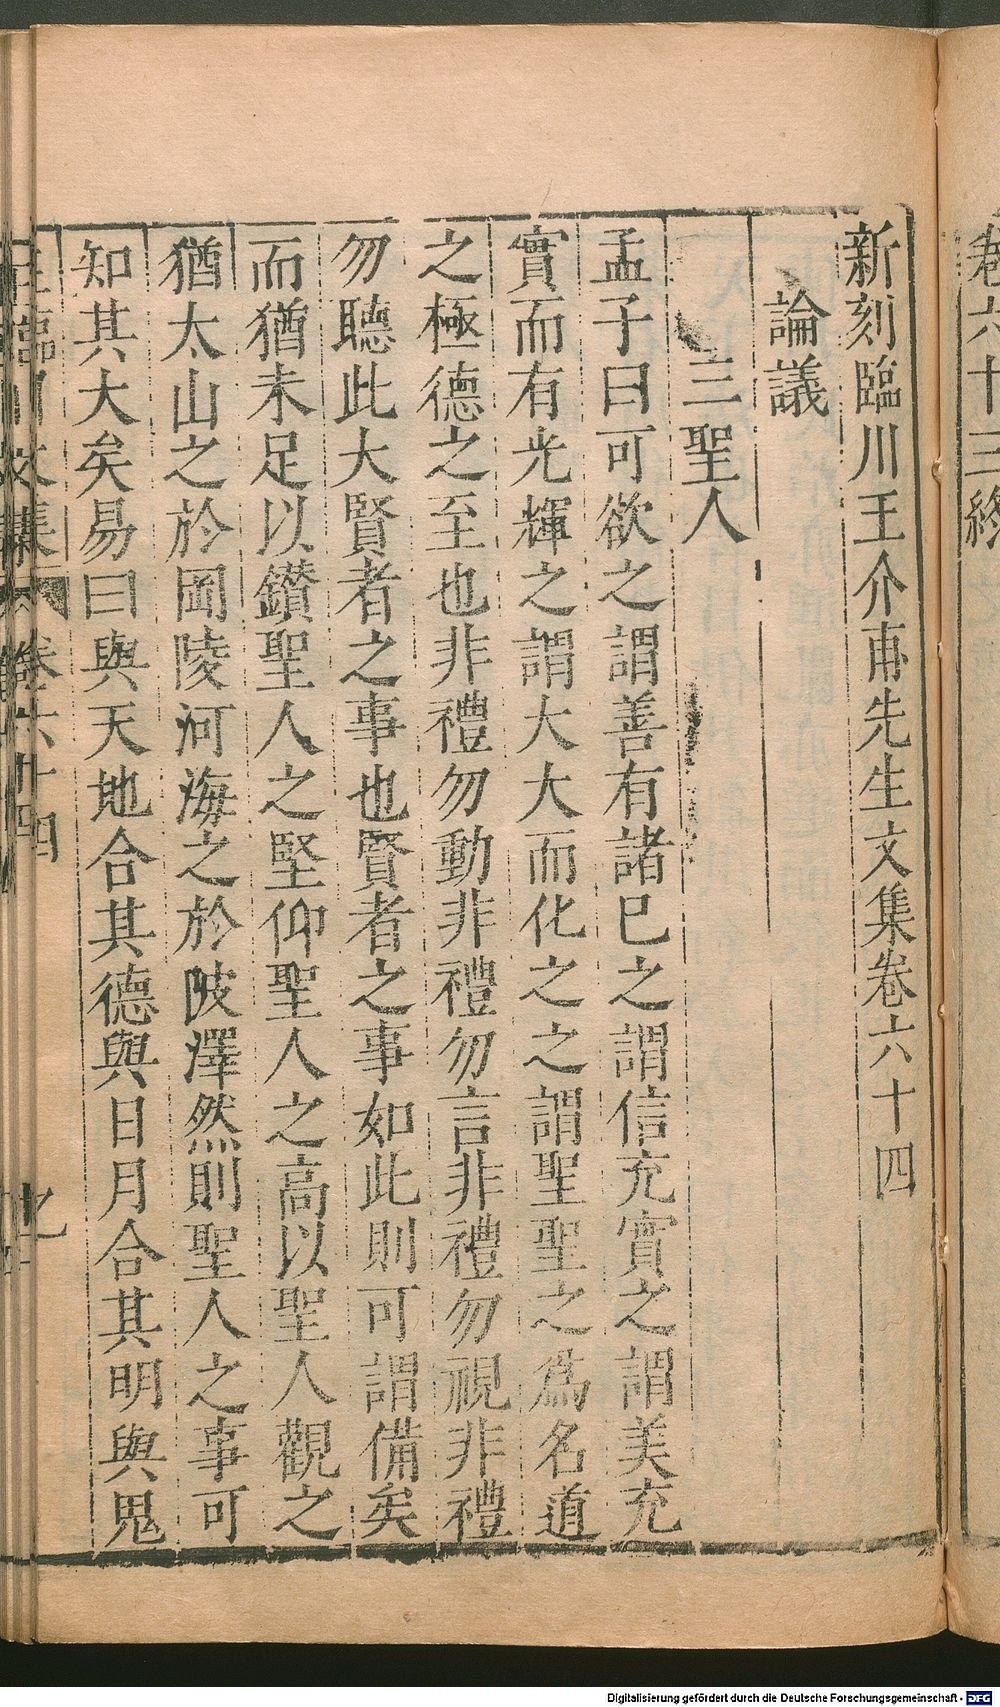 卷六十三終
新刻臨川王介甫先生文集卷六十四
論議
三聖人
孟子曰可欲之謂善有諸巳之謂信充實之謂美充
實而有光輝之謂大大而化之之謂聖聖之為名道
之極德之至也非禮勿動非禮勿言非禮勿視非禮
勿聽此大賢者之事也賢者之事如此則可謂備矣
而猶未足以鑽聖人之堅仰聖人之高以聖人觀之
猶太山之於岡陵河海之於陂澤然則聖人之事可
知其大矣易曰與天地合其德與日月合其明與鬼
王臨川文集 卷六十四
Digitalisierung gefördert durch die Deutsche Forschungsgemeinschaft - DFG